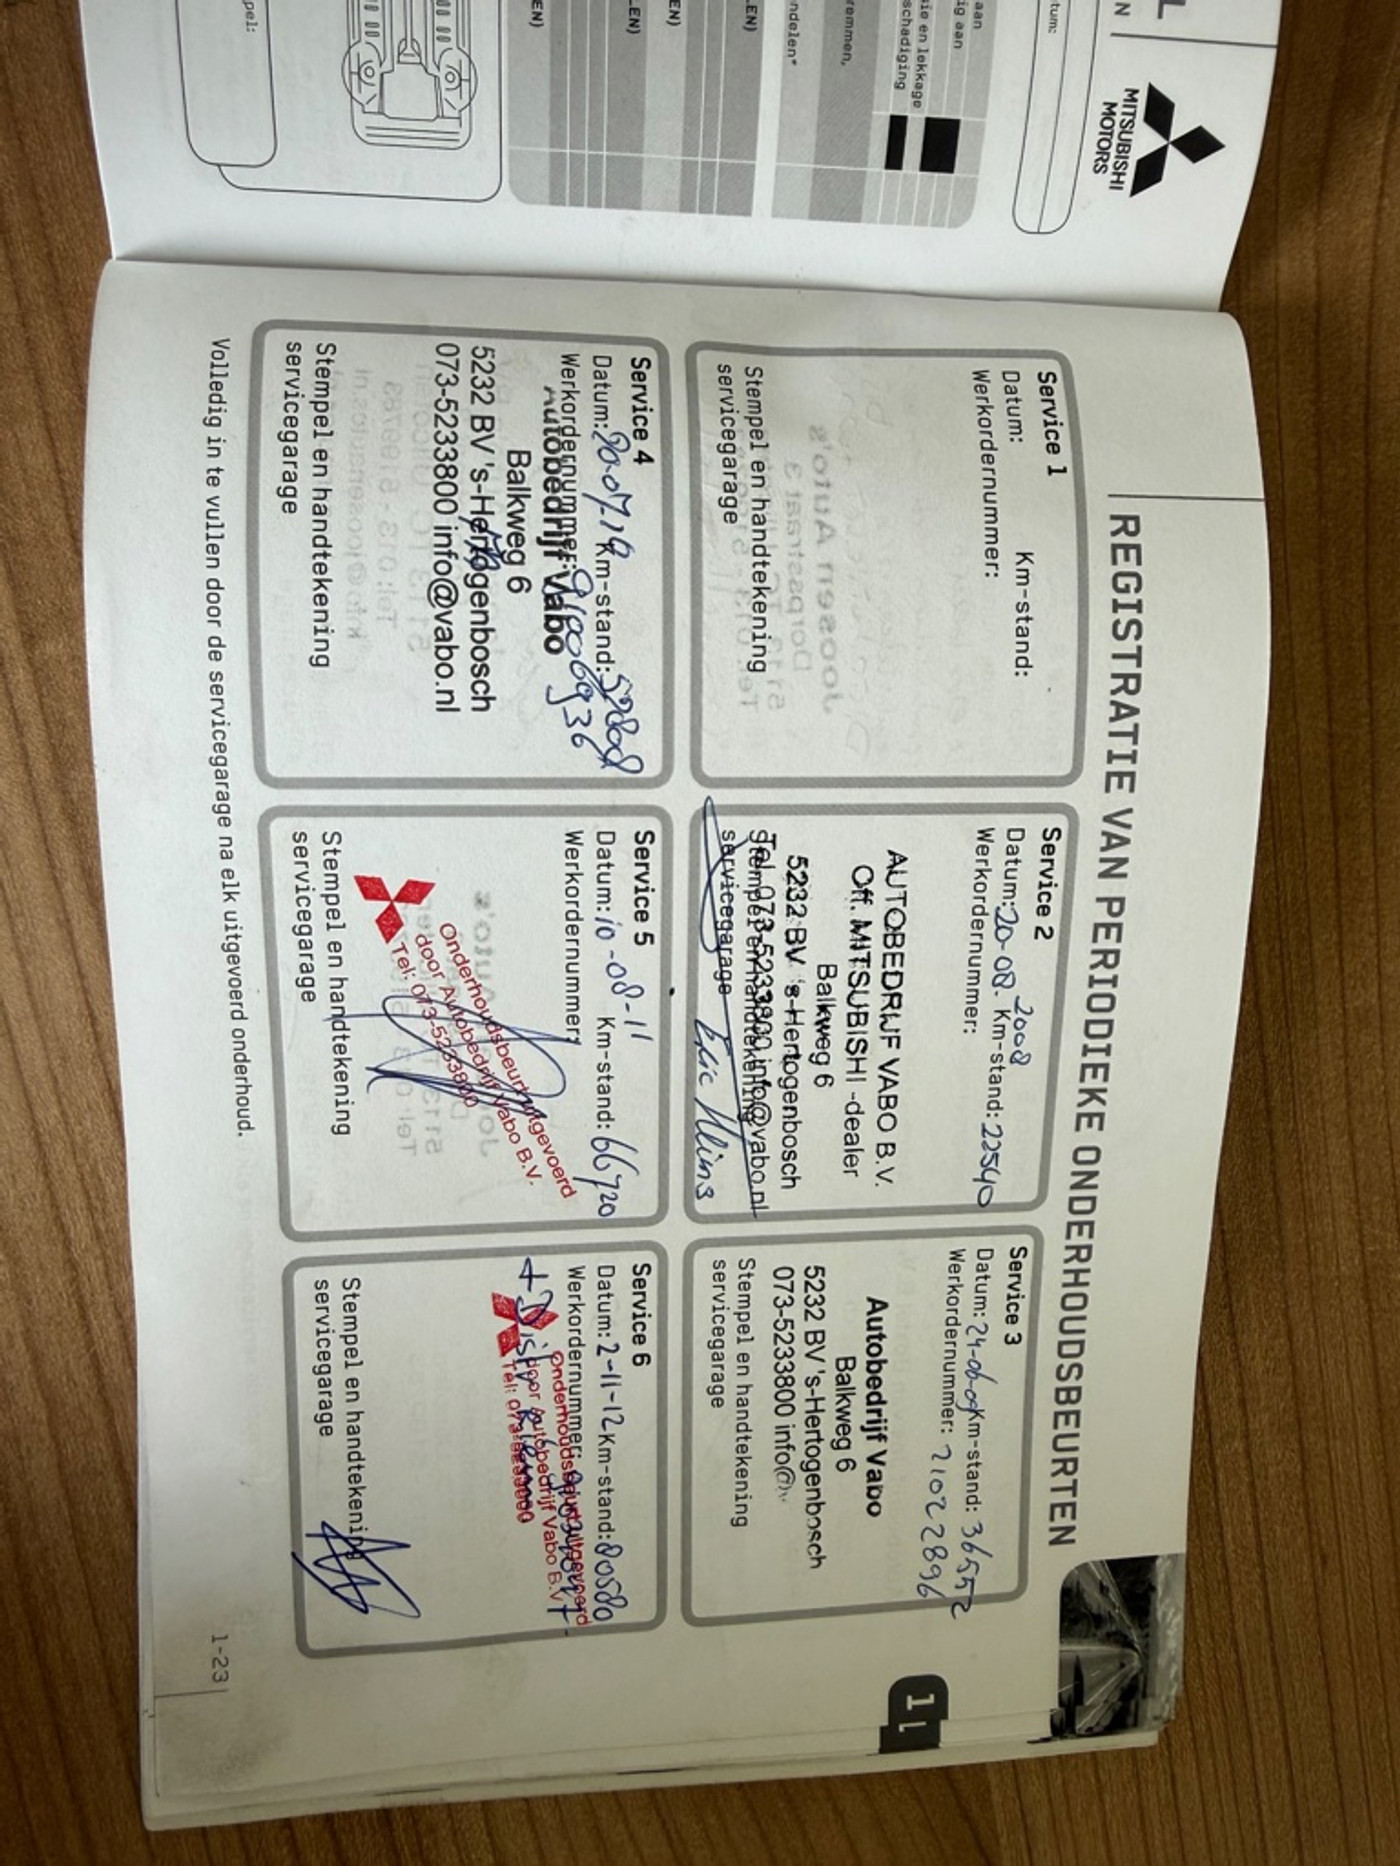 MITSUBISHI
MOTORS
REGISTRATIE VAN PERIODIEKE ONDERHOUDSBEURTEN
Service 1
Datum: Km-stand:
Werkordernummer:
Stempel en handtekening
servicegarage
Service 2
Datum: 20-08-2008 Km-stand: 22540
Werkordernummer:
AUTOBEDRIJF VABO B.V.
Off. MITSUBISHI -dealer
Balkweg 6
5232 BV 's-Hertogenbosch
Tel. 073-5233800 info@vabo.nl
Stempel en handtekening
servicegarage
Service 3
Datum: 24-06-09 Km-stand: 36552
Werkordernummer: 21022896
Autobedrijf Vabo
Balkweg 6
5232 BV 's-Hertogenbosch
073-5233800 info@
Stempel en handtekening
servicegarage
Service 4
Datum: Km-stand:
Werkordernummer:
Autobedrijf Vabo
Balkweg 6
5232 BV 's-Hertogenbosch
073-5233800 info@vabo.nl
Stempel en handtekening
servicegarage
Service 5
Datum: 10-08-11 Km-stand: 66720
Werkordernummer:
Onderhoudsbeurt uitgevoerd
door Autobedrijf Vabo B.V.
Tel: 073-5233800
Stempel en handtekening
servicegarage
Service 6
Datum: 2-11-12 Km-stand: 80580
Werkordernummer:
Onderhoudsbeurt uitgevoerd
door Autobedrijf Vabo B.V.
Tel: 073-5233800
Stempel en handtekening
servicegarage
Volledig in te vullen door de servicegarage na elk uitgevoerd onderhoud.
1-23
1